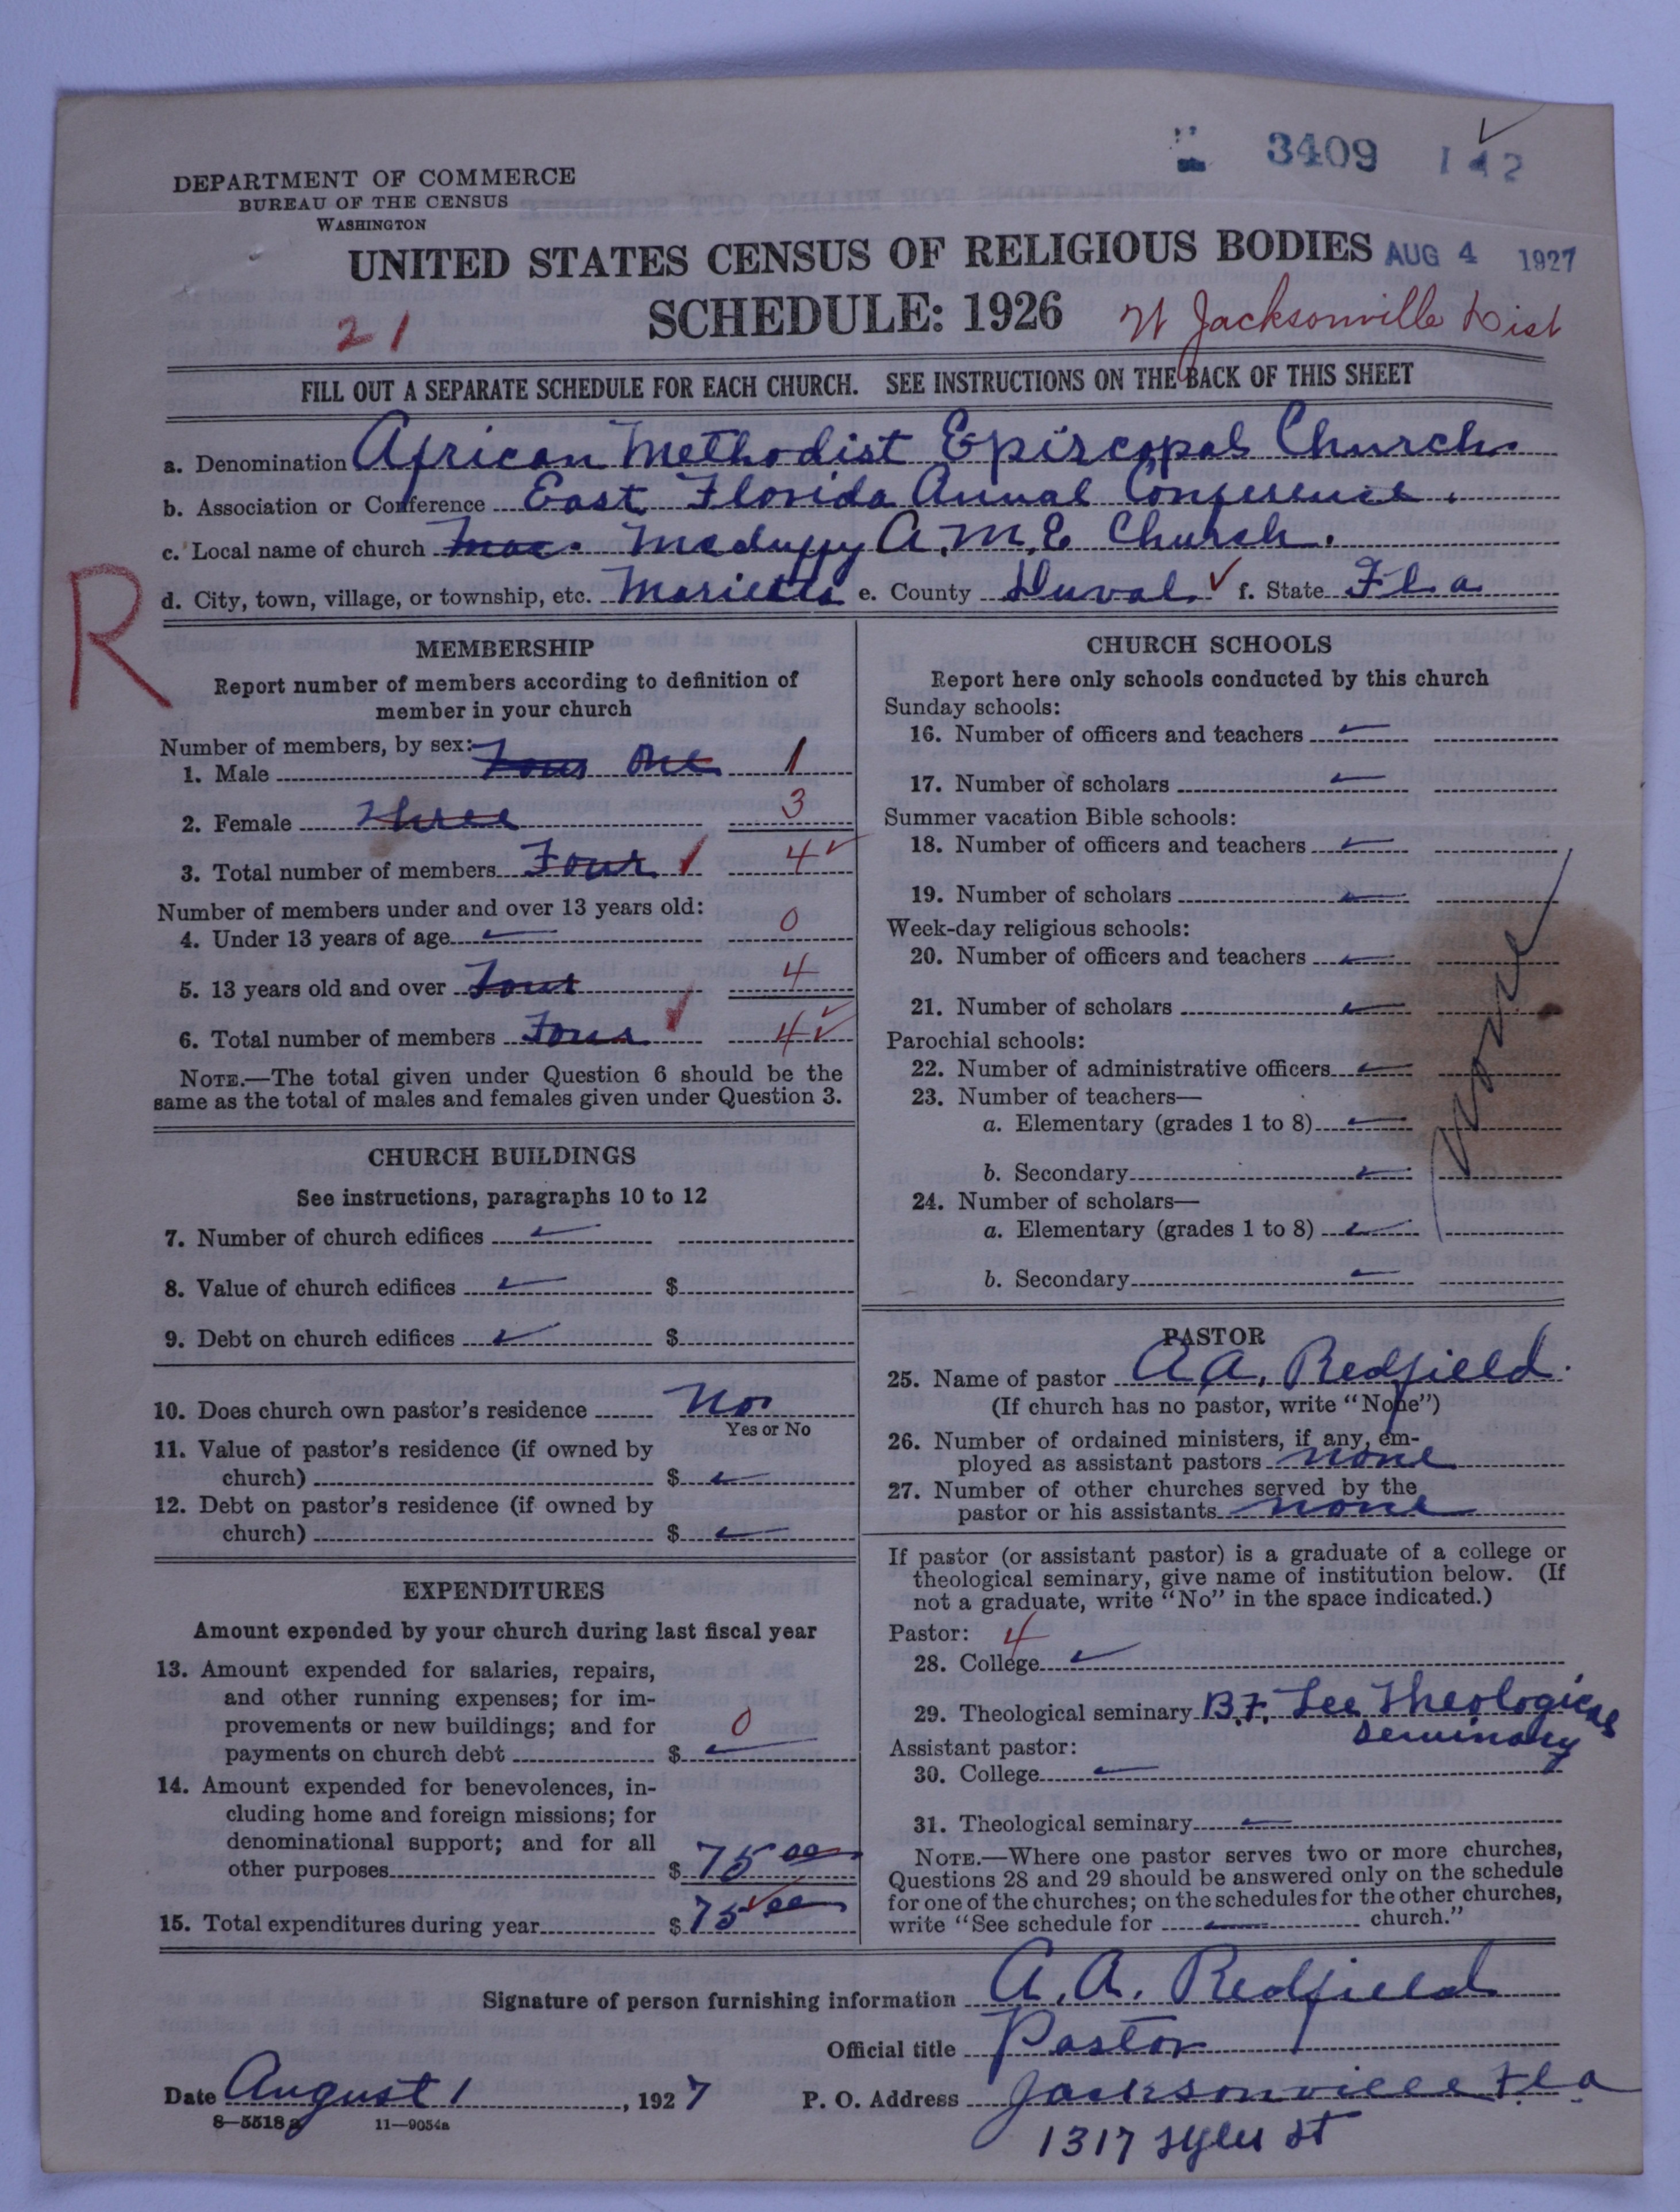 3409 142
DEPARTMENT OF COMMERCE
BUREAU OF THE CENSUS
WASHINGTON
UNITED STATES CENSUS OF RELIGIOUS BODIES AUG 4 1927
SCHEDULE: 1926
21
Jacksonville Dist
FILL OUT A SEPARATE SCHEDULE FOR EACH CHURCH. SEE INSTRUCTIONS ON THE BACK OF THIS SHEET
a. Denomination African Methodist Episcopal Church.
b. Association or Conference East Florida Annual Conference.
c. Local name of church Mac. Mcduffy A.M.E Church.
d. City, town, village, or township, etc. Marietta e. County Duval f. State Fla
R
MEMBERSHIP
Report number of members according to definition of
member in your church
Number of members, by sex:
1. Male Four One 1
2. Female Three 3
3. Total number of members Four 4
Number of members under and over 13 years old:
4. Under 13 years of age 0
5. 13 years old and over Four 4
6. Total number of members Four 4
NOTE.—The total given under Question 6 should be the
same as the total of males and females given under Question 3.
CHURCH BUILDINGS
See instructions, paragraphs 10 to 12
7. Number of church edifices
8. Value of church edifices $
9. Debt on church edifices $
10. Does church own pastor's residence No
Yes or No
11. Value of pastor's residence (if owned by
church) $
12. Debt on pastor's residence (if owned by
church) $
EXPENDITURES
Amount expended by your church during last fiscal year
13. Amount expended for salaries, repairs,
and other running expenses; for im-
provements or new buildings; and for
payments on church debt $ 0
14. Amount expended for benevolences, in-
cluding home and foreign missions; for
denominational support; and for all
other purposes $ 75 00
15. Total expenditures during year $ 75 00
CHURCH SCHOOLS
Report here only schools conducted by this church
Sunday schools:
16. Number of officers and teachers
17. Number of scholars
Summer vacation Bible schools:
18. Number of officers and teachers
19. Number of scholars
Week-day religious schools:
20. Number of officers and teachers
21. Number of scholars
Parochial schools:
22. Number of administrative officers
23. Number of teachers—
a. Elementary (grades 1 to 8)
b. Secondary
24. Number of scholars—
a. Elementary (grades 1 to 8)
b. Secondary
None
PASTOR
25. Name of pastor A A. Redfield.
(If church has no pastor, write "None")
26. Number of ordained ministers, if any, em-
ployed as assistant pastors none
27. Number of other churches served by the
pastor or his assistants none
If pastor (or assistant pastor) is a graduate of a college or
theological seminary, give name of institution below. (If
not a graduate, write "No" in the space indicated.)
Pastor: 4
28. College
29. Theological seminary B.F. Lee Theological
Seminary
Assistant pastor:
30. College
31. Theological seminary
NOTE.—Where one pastor serves two or more churches,
Questions 28 and 29 should be answered only on the schedule
for one of the churches; on the schedules for the other churches,
write "See schedule for church."
Signature of person furnishing information A. A. Redfield
Official title Pastor
Date August 1, 1927 P. O. Address Jacksonville Fla.
8—5518 a 11—9054a
1317 St